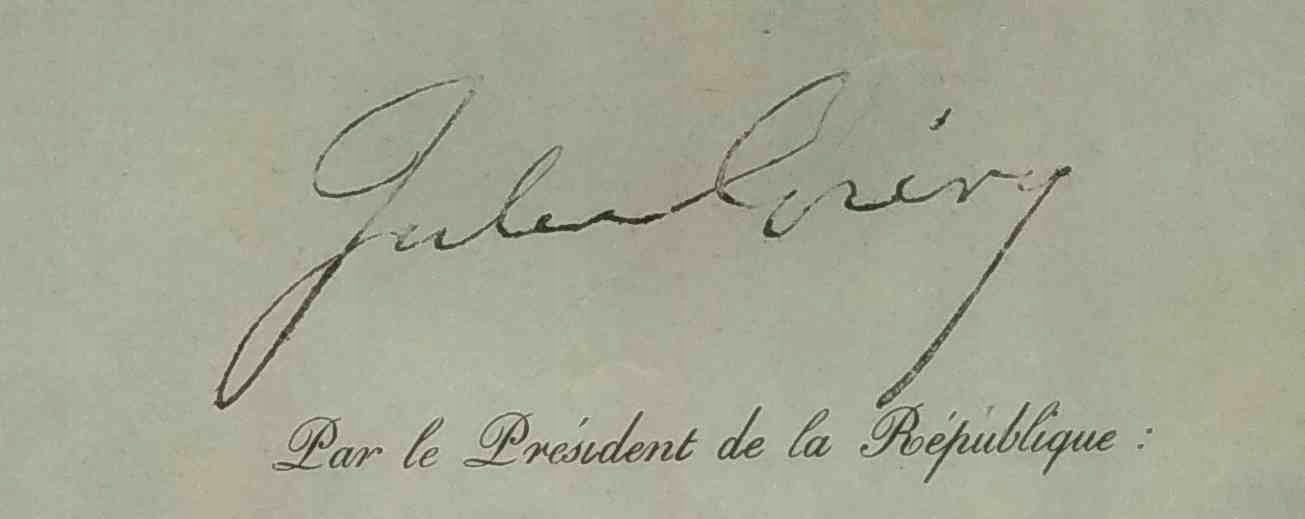 Jules Grévy
Par le Président de la République :